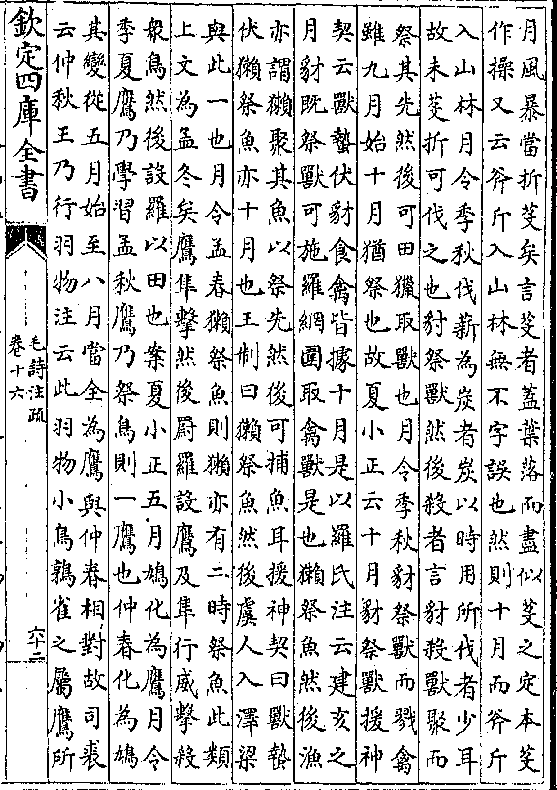 月風暴當折芟矣言芟者蓋葉落而盡似芟之定本芟
作操又云斧斤入山林無不字誤也然則十月而斧斤
入山林月令季秋伐薪為炭者炭以時用所伐者少耳
故未芟折可伐之也豺祭獸然後殺者言豺殺獸聚而
祭其先然後可田獵取獸也月令季秋豺祭獸而戮禽
雖九月始十月猶祭也故夏小正云十月豺祭獸援神
契云獸蟄伏豺食禽皆據十月是以羅氏注云建亥之
月豺既祭獸可施羅網圍取禽獸是也獺祭魚然後漁
亦謂獺聚其魚以祭先然後可捕魚耳援神契曰獸蟄
伏獺祭魚亦十月也王制曰獺祭魚然後虞人入澤梁
與此一也月令孟春獺祭魚則獺亦有二時祭魚此類
上文為孟冬矣鷹隼擊然後罻羅設鷹及隼行威擊殺
衆鳥然後設羅以田也案夏小正五月鳩化為鷹月令
季夏鷹乃學習孟秋鷹乃祭鳥則一鷹也仲春化為鳩
其變從五月始至八月當全為鷹與仲春相對故司裘
云仲秋王乃行羽物注云此羽物小鳥鶉雀之屬鷹所
欽定四庫全書
毛詩注疏
卷十六
六十二